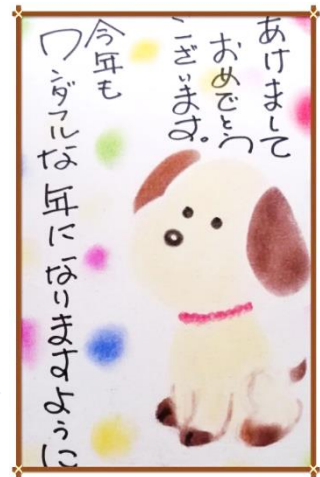 あけまして
おめでとう
ございます。
今年も
ワンダフルな年になりますように